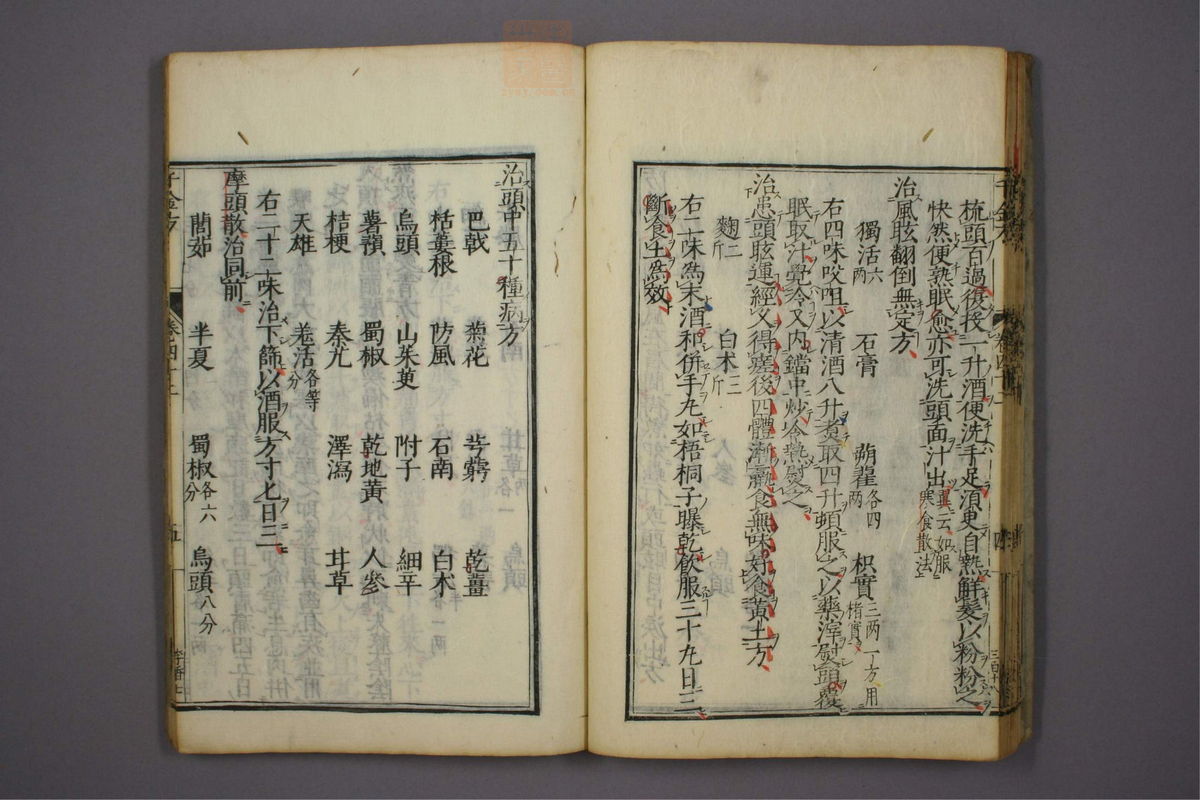 梳頭百過復投一升酒便洗手足須臾自熱鮮奏以粉粉之
快然便熟眠愈亦可洗頭面汁出翼云如服寒食散法
治風眩翻倒無定方
獨活六兩 石膏 蒴藋各四兩 枳實三兩一方用楮實
右四味㕮咀以清酒八升煮取四升頓服之以藥滓熨頭覆
眠取汁覺冷又內鐺中炒令熱熨之
治患頭眩運經久得瘥後四體漸羸食無味好食黃土方
麴二斤 白朮三斤
右二味為末酒和併手丸如梧桐子曝乾飲服三十丸日三
斷食土為效
治頭中五十種病方
巴戟 菊花 芎藭 乾薑
栝蔞根 防風 石南 白朮
烏頭 山茱萸 附子 細辛
薯蕷 蜀椒 乾地黃 人參
桔梗 秦艽 澤瀉 甘草
天雄 羌活各等分
右二十二味治下篩以酒服方寸匕日三
摩頭散治同前
藺茹 半夏 蜀椒各六分 烏頭八分